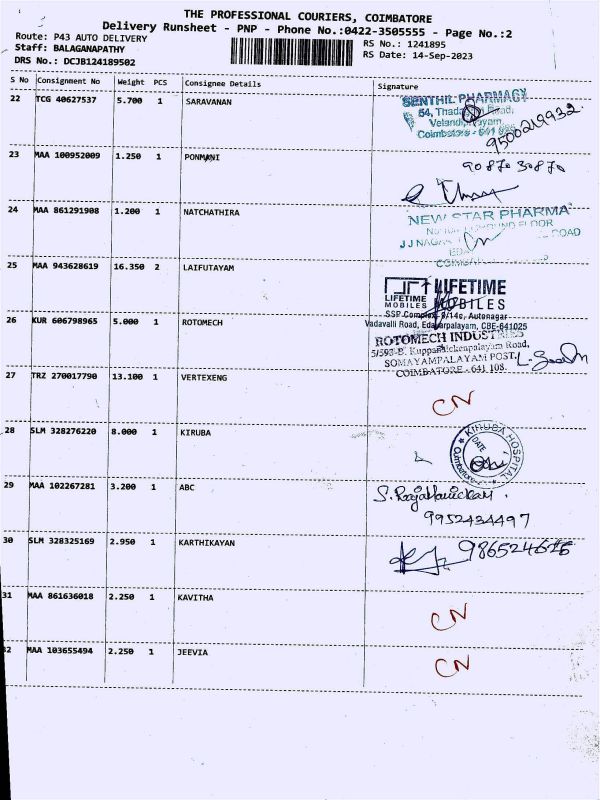 THE PROFESSIONAL COURIERS, COIMBATORE
Delivery Runsheet - PNP - Phone No.:0422-3505555 - Page No.:2
Route: P43 AUTO DELIVERY
RS No.: 1241895
Staff: BALAGANAPATHY
RS Date: 14-Sep-2023
DRS No.: DCJB124189502
S No Consignment No Weight PCS Consignee Details Signature
22 TCG 40627537 5.700 1 SARAVANAN
SENTHIL PHARMACY
54,
Coimbatore - 641
9500219932
23 MAA 100952009 1.250 1 PONMANI
90870 30870
24 MAA 861291908 1.200 1 NATCHATHIRA
NEW STAR PHARMA
FLOOR
J J NAGAR ROAD
25 MAA 943628619 16.350 2 LAIFUTAYAM
LIFETIME
LIFETIME MOBILES
MOBILES
SSP Complex, 8/14c, Autonagar
Vadavalli Road, Edayarpalayam, CBE-641025
26 KUR 606798965 5.000 1 ROTOMECH
ROTOMECH INDUSTRIES
5/593-B, Kuppanaickenpalayam Road,
SOMAYAMPALAYAM POST,
COIMBATORE - 641 108.
27 TRZ 270017790 13.100 1 VERTEXENG
CN
28 SLM 328276220 8.000 1 KIRUBA
KIRUBA HOSPITAL
DATE
Coimbatore
29 MAA 102267281 3.200 1 ABC
S. Rajamanickam.
9952434497
30 SLM 328325169 2.950 1 KARTHIKAYAN
31 MAA 861636018 2.250 1 KAVITHA
CN
32 MAA 103655494 2.250 1 JEEVIA
CN